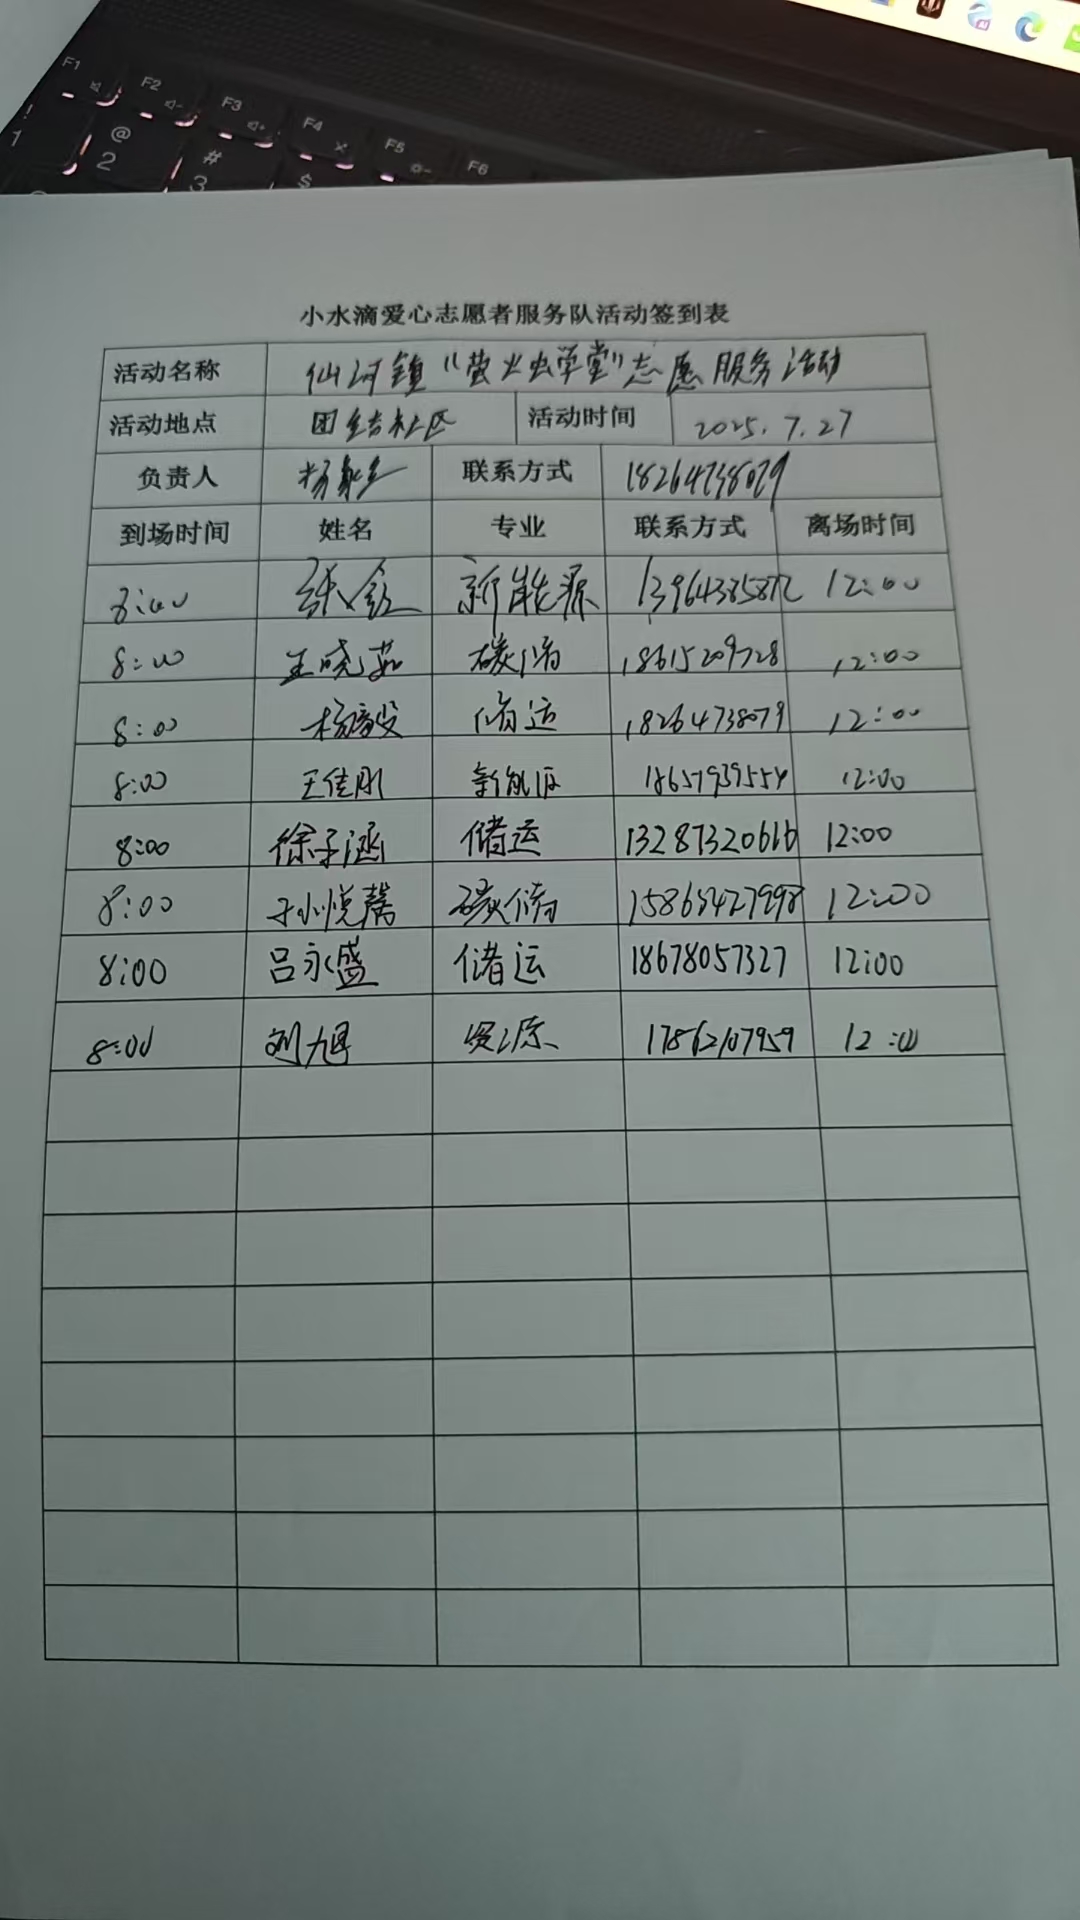 F1
F2
F3
F4
F5
F6
!
1
@
2
#
3
$
小水滴爱心志愿者服务队活动签到表
活动名称 仙河镇“萤火虫学堂”志愿服务活动
活动地点 团结社区 活动时间 2025.7.27
负责人 联系方式 18264738079
到场时间 姓名 专业 联系方式 离场时间
8:00 张钦 新能源 12:00
8:00 王晓茹 碳储 18615209728 12:00
8:00 杨毅 储运 18264738079 12:00
8:00 王佳刚 新能源 18657939554 12:00
8:00 徐子涵 储运 13287320616 12:00
8:00 碳储 12:00
8:00 吕永盛 储运 18678057327 12:00
8:00 刘旭 资源 17862107959 12:00